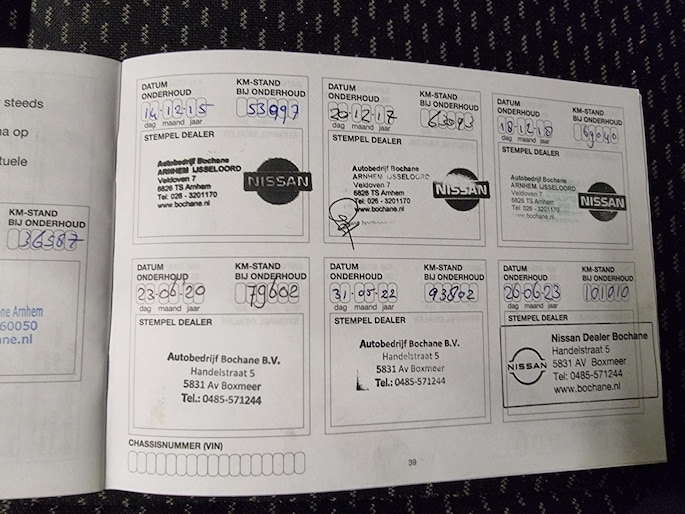 steeds
op
tuele
KM-STAND
BIJ ONDERHOUD
36587
Arnhem
60050
ne.nl
DATUM
ONDERHOUD
KM-STAND
BIJ ONDERHOUD
14-12-15
53997
dag maand jaar
STEMPEL DEALER
Autobedrijf Bochane
ARNHEM IJSSELOORD
Veldoven 7
6826 TS Arnhem
Tel: 026 - 3201170
www.bochane.nl
NISSAN
DATUM
ONDERHOUD
KM-STAND
BIJ ONDERHOUD
20-12-17
63093
dag maand jaar
STEMPEL DEALER
Autobedrijf Bochane
ARNHEM IJSSELOORD
Veldoven 7
6826 TS Arnhem
Tel: 026 - 3201170
www.bochane.nl
NISSAN
DATUM
ONDERHOUD
KM-STAND
BIJ ONDERHOUD
18-12-18
69040
dag maand jaar
STEMPEL DEALER
Autobedrijf Bochane
ARNHEM IJSSELOORD
Veldoven 7
6826 TS Arnhem
Tel: 026 - 3201170
www.bochane.nl
NISSAN
DATUM
ONDERHOUD
KM-STAND
BIJ ONDERHOUD
23-06-20
79602
dag maand jaar
STEMPEL DEALER
Autobedrijf Bochane B.V.
Handelstraat 5
5831 AV Boxmeer
Tel.: 0485-571244
DATUM
ONDERHOUD
KM-STAND
BIJ ONDERHOUD
31-05-22
93802
dag maand jaar
STEMPEL DEALER
Autobedrijf Bochane B.V.
Handelstraat 5
5831 AV Boxmeer
Tel.: 0485-571244
DATUM
ONDERHOUD
KM-STAND
BIJ ONDERHOUD
26-06-23
101010
dag maand jaar
STEMPEL DEALER
NISSAN
Nissan Dealer Bochane
Handelstraat 5
5831 AV Boxmeer
Tel: 0485-571244
www.bochane.nl
CHASSISNUMMER (VIN)
39